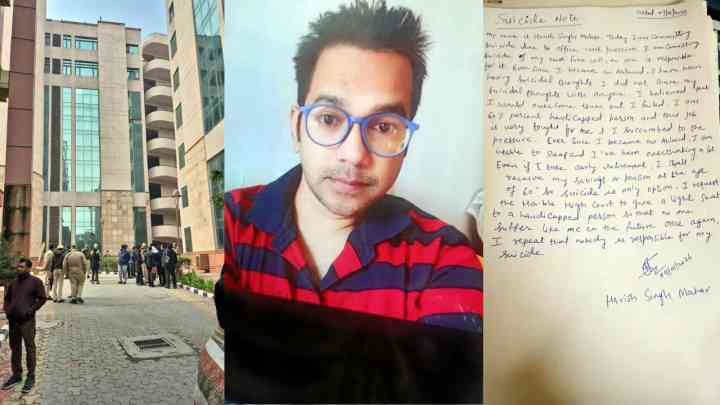 Suicide Note
My name is Harish Singh Mahar. Today I am Committing
Suicide due to office work pressure. I am Committing
Suicide of my own free will, no one is responsible
for it. Ever Since I became an Ahlmad, I have been
having Suicidal thoughts. I did not share my
Suicidal thoughts with anyone. I believed that
I would overcome them but I failed. I am
60 percent handicapped person and this job
is very tough for me & I succumbed to the
pressure. Ever Since I became an Ahlmad, I am
unable to Sleep and I've been overthinking a lot.
Even if I take early retirement I shall
receive my Savings or pension at the age
of 60 so suicide is only option. I request
the Hon'ble High Court to give a light Seat
to a handicapped person so that no one
Suffer like me in the future. Once again,
I repeat that nobody is responsible for my
Suicide.
Harish Singh Mahar